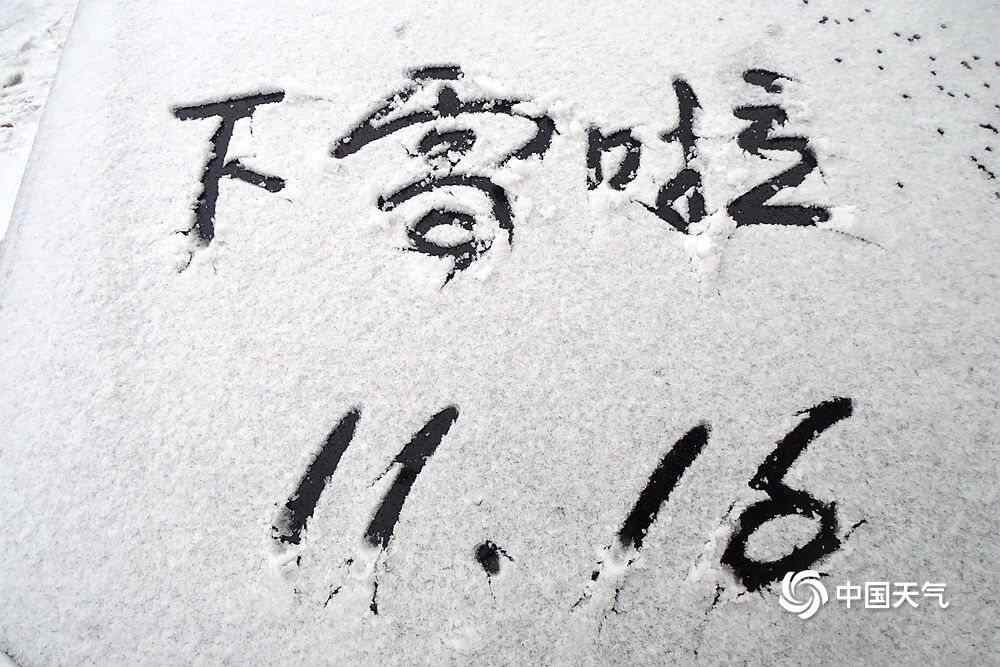 下雪啦
11.16
中国天气